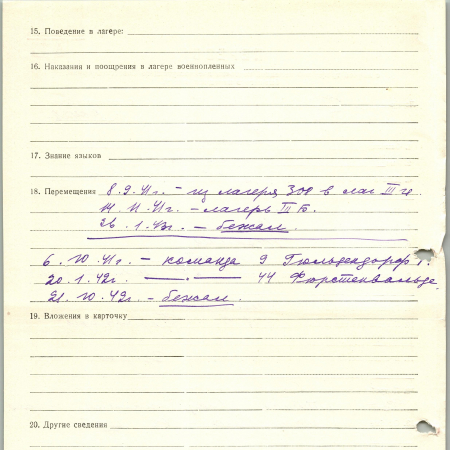 15. Поведение в лагере:
16. Наказания и поощрения в лагере военнопленных
17. Знание языков
18. Перемещения 8.9.41г. - из лагеря 308 в лаг III
14.11.41г. - лагерь II Б.
26.1.43г. - бежал.
6.10.41г. - команда 9 Гюльдендорф г.
20.1.42г. —— · —— 44 Фюрстенвальде
21.10.42г. - бежал.
19. Вложения в карточку
20. Другие сведения